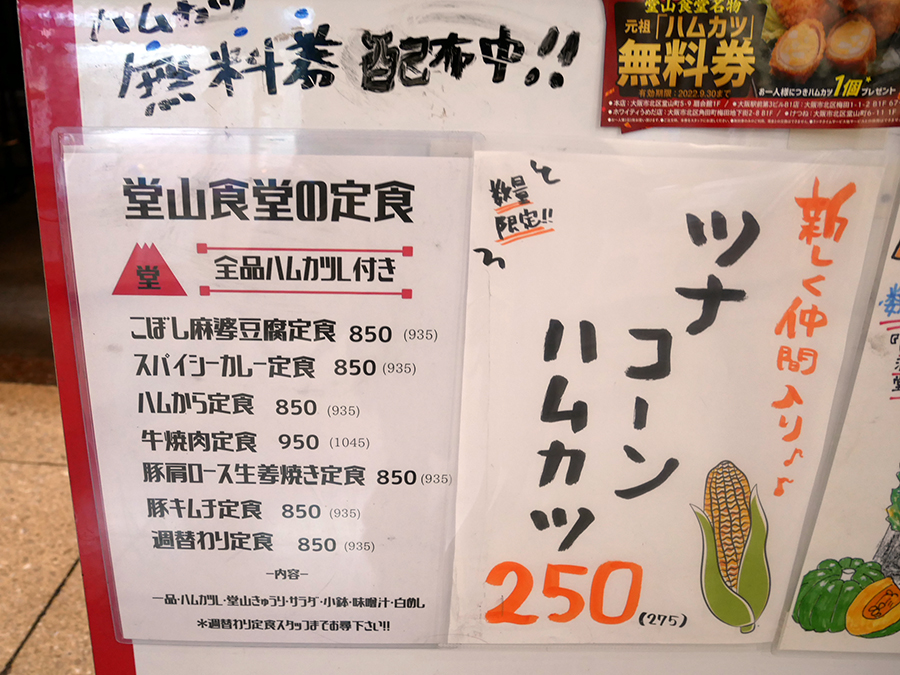 ハムカツ
無料券 配布中!!
堂山食堂名物
元祖「ハムカツ」
無料券
有効期限:2022.9.30まで
お一人様につきハムカツ1個*プレゼント
●本店:大阪市北区堂山町5-9
●ホワイティうめだ店:大阪市北区角田町梅田地下街2-8 B1F
堂山食堂の定食
堂
全品ハムカツL付き
こぼし麻婆豆腐定食 850 (935)
スパイシーカレー定食 850 (935)
ハムから定食 850 (935)
牛焼肉定食 950 (1045)
豚肩ロース生姜焼き定食 850 (935)
豚キムチ定食 850 (935)
週替わり定食 850 (935)
-内容-
一品・ハムカツL・堂山きゅうり・サラダ・小鉢・味噌汁・白めし
*週替わり定食スタッフまでお尋ね下さい!!
新しく仲間入り♪♪
数量
限定!!
ツナ
コーン
ハムカツ
250 (275)
数